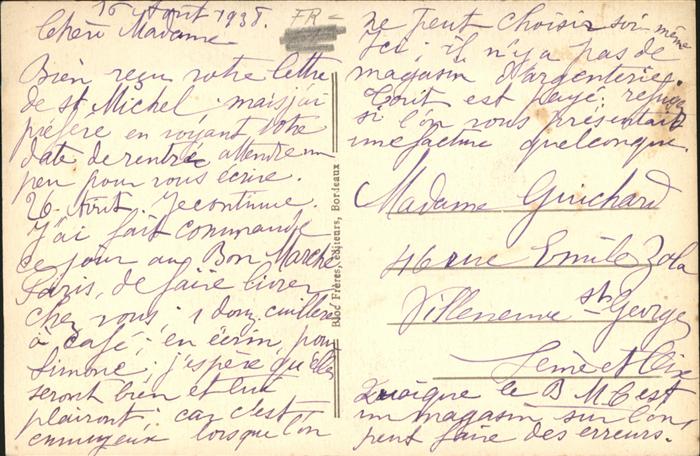 16 Août 1938.
FR =
Chère Madame
Bien reçu votre lettre
de St Michel mais j'ai
préféré en voyant votre
date de rentrée attendre un
peu pour vous écrire.
26 Août, Je continue.
J'ai fait commande
ce jour au Bon Marché
Paris, de faire livrer
chez vous; 1 douz. cuillères
à café, en écrin, pour
Simone; j'espère qu'elles
seront bien et lui
plairont; car c'est
ennuyeux lorsque l'on
ne peut choisir soi même
Ici, il n'y a pas de
magasin d'argenterie.
Tout est payé, refusez
si l'on vous présentait
une facture quelconque.
Bloc Frères, éditeurs, Bordeaux
Madame Guichard
46 rue Emile Zola
Villeneuve St George
Seine et Oise
Quoique le B M C est
un magasin sur l'on
peut faire des erreurs.